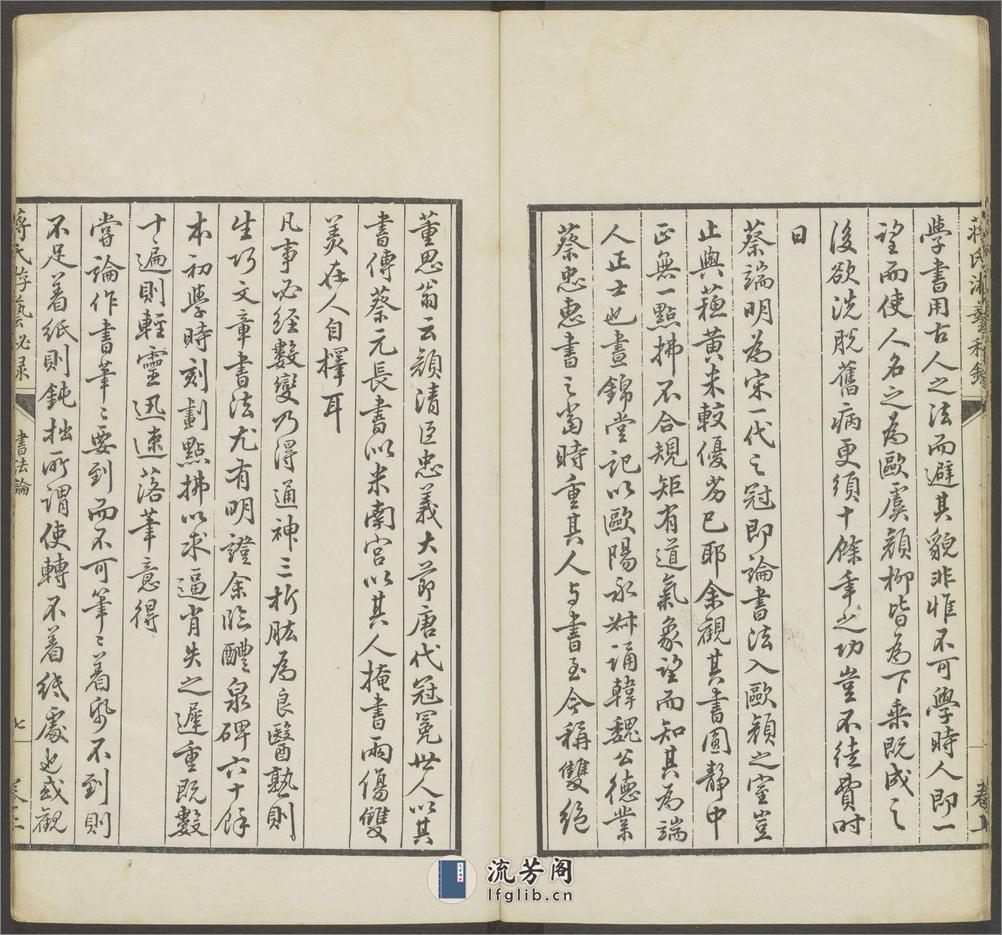 學書用古人之法而避其貌非惟不可學時人即一
望而使人名之為歐虞顏柳皆為下乘既成之
後欲洗脫舊病更須十餘年之功豈不徒費時
日
蔡端明為宋一代之冠即論書法入歐顏之室豈
止與蘇黃米較優劣已耶余觀其書圓靜中
正無一點拂不合規矩有道氣象望而知其為端
人正士也晝錦堂記以歐陽永叔誦韓魏公德業
蔡忠惠書之當時重其人與書至今稱雙絕
董思翁云顏清臣忠義大節唐代冠冕世人以其
書傳蔡元長書以米南宮以其人掩書兩傷雙
美在人自擇耳
凡事必經數變乃得通神三折肱為良醫熟則
生巧文章書法尤有明證余臨醴泉碑六十餘
本初學時刻劃點拂以求逼肖失之遲重既數
十遍則輕靈迅速落筆意得
嘗論作書筆〻要到而不可筆〻着紙不到則
不足着紙則鈍拙所謂使轉不着紙處也或觀
蔣氏游藝秘录
書法論
七
流芳阁
lfglib.cn